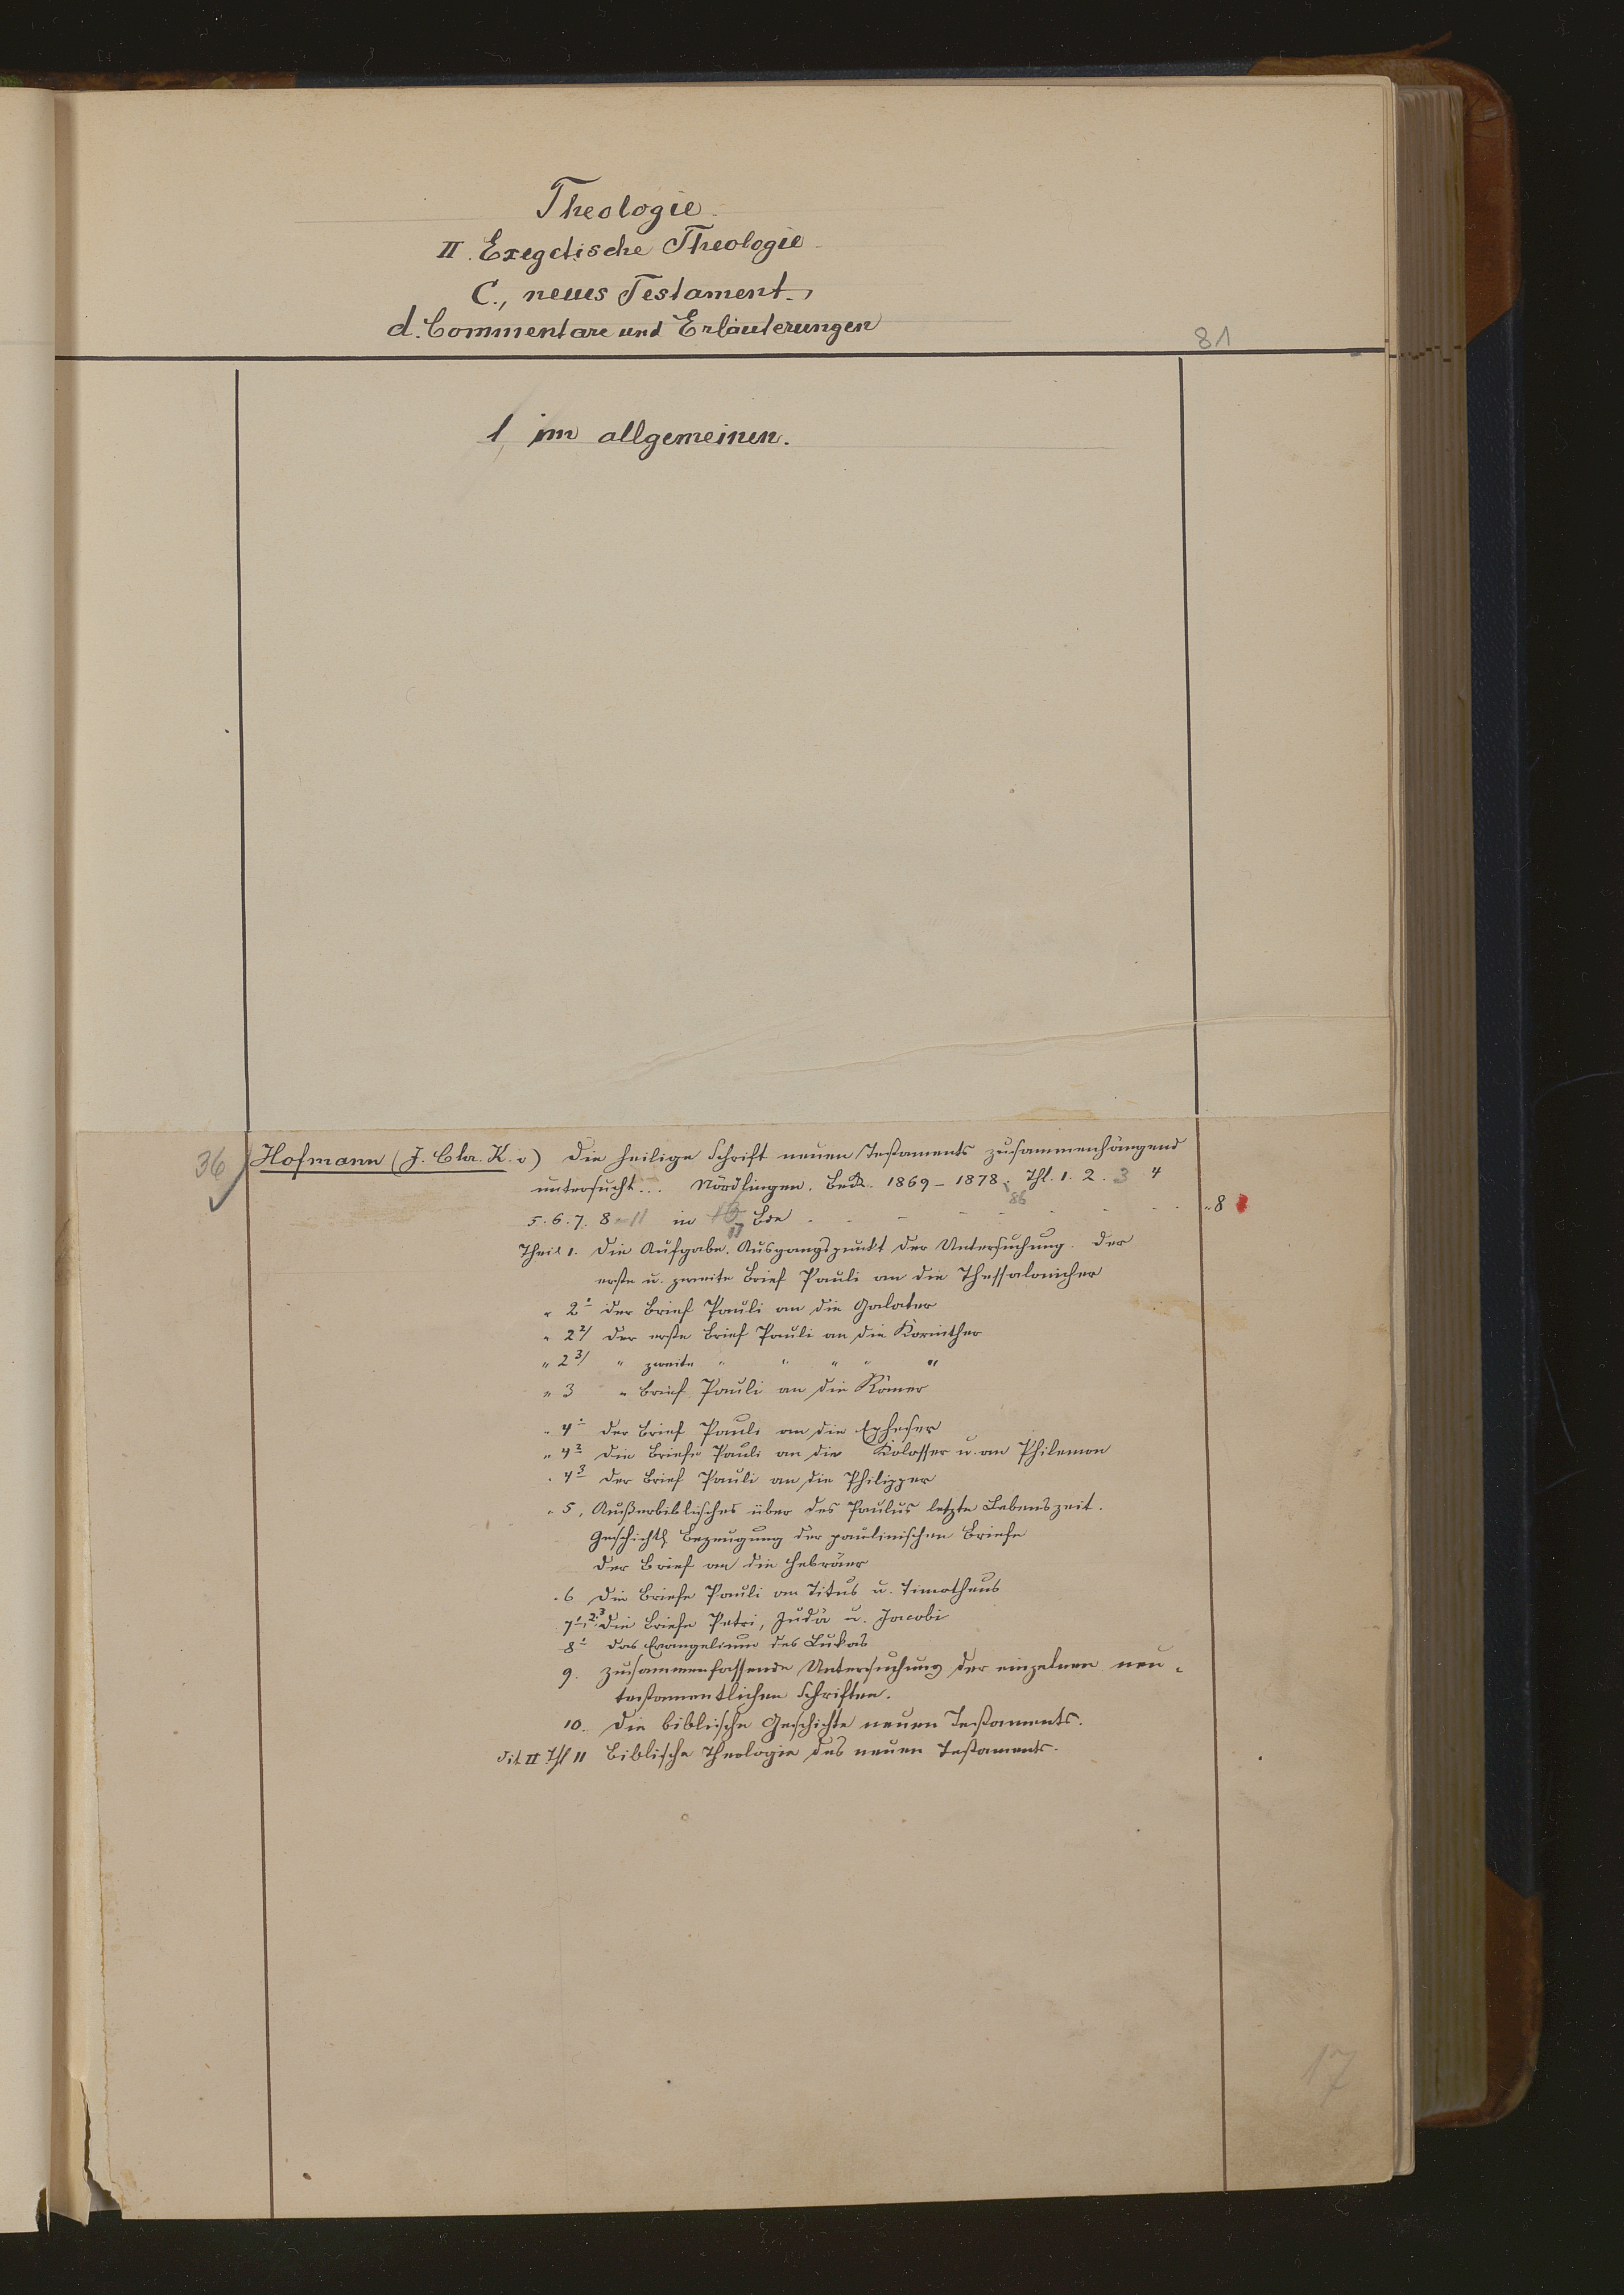 Theologie.
II. Exegetische Theologie.
C., neues Testament.
d. Commentare und Erläuterungen
81
1, im allgemeinen.
36 Hofmann (J. Chr. K. v) Die heilige Schrift neuen Testaments zusammenhängend
untersucht... Nördlingen. Beck. 1869-1878. Thl. 1. 2. 3 4
86
5. 6. 7. 8-11 in Bde „8
17
Theil 1. Die Aufgabe. Ausgangspunkt der Untersuchung. Der
erste u. zweite Brief Pauli an die Thessalonicher
" 2¹ der Brief Pauli an die Galater
" 2²/ der erste Brief Pauli an die Korinther
" 2³/ " zweite " " " " "
" 3 " Brief Pauli an die Römer
" 4¹ der Brief Pauli an die Epheser
" 4² Die Briefe Pauli an die Kolosser u. an Philemon
" 4³ Der Brief Pauli an die Philipper
" 5, Außerbiblisches über des Paulus letzte Lebenszeit.
Geschichtl Bezeugung der paulinischen Briefe
Der Brief an die Hebräer
" 6 Die Briefe Pauli an Titus u. Timotheus
7¹,²,³ Die Briefe Petri, Judä u. Jacobi
8¹ Das Evangelium des Lukas
9. Zusammenfassende Untersuchung der einzelnen neu-
testamentlichen Schriften.
10. Die biblische Geschichte neuen Testaments.
II Thl 11 Biblische Theologie des neuen Testaments.
17